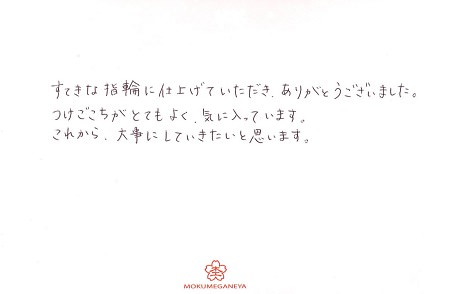 すてきな指輪に仕上げていただき、ありがとうございました。
つけごこちがとてもよく、気に入っています。
これから、大事にしていきたいと思います。
MOKUMEGANEYA